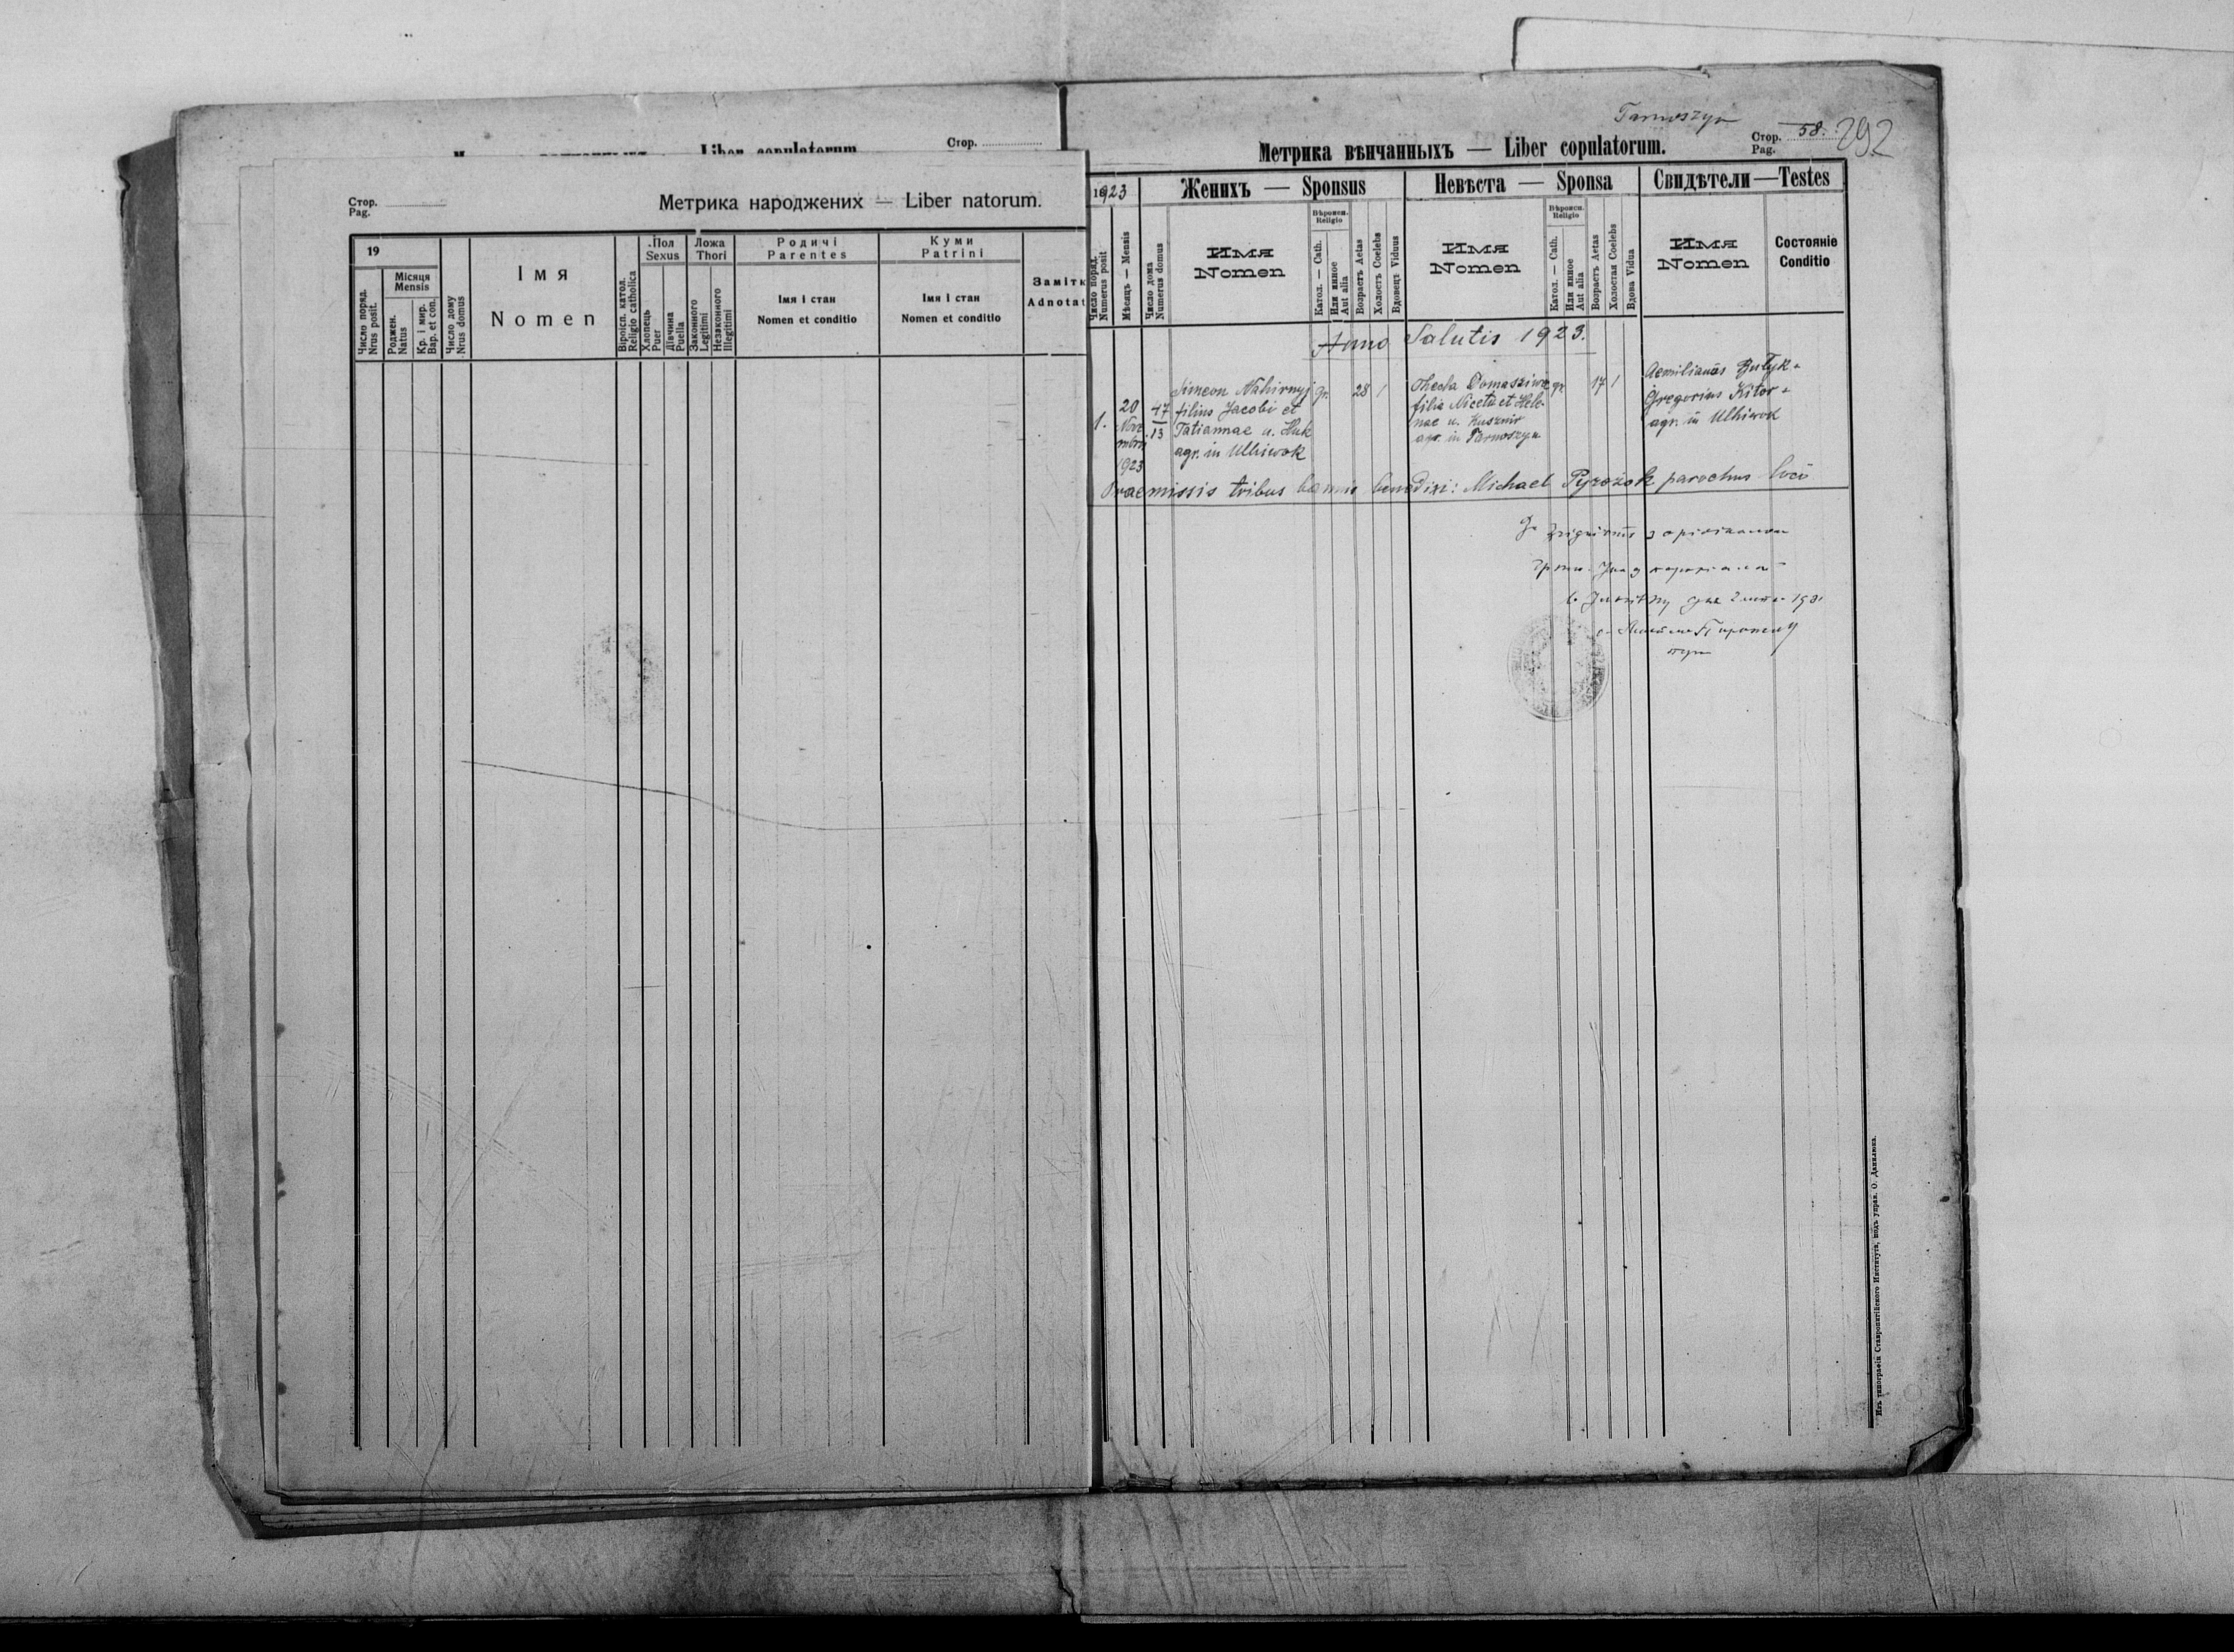 Стор.
Стор.
Pag.
Метрика народжених — Liber natorum.
19
Число поряд.
Nrus posit.
Місяця
Mensis
Роджен.
Natus
Кр. і мир.
Bap. et con.
Число дому
Nrus domus
Імя
Nomen
Віроісп. катол.
Religio catholica
Пол
Sexus
Хлопець
Puer
Дівчина
Puella
Ложа
Thori
Законного
Legitimi
Незаконного
Illegitimi
Родичі
Parentes
Імя і стан
Nomen et conditio
Куми
Patrini
Імя і стан
Nomen et conditio
Замітк
Adnotat
Tarnoszyn
Метрика вѣнчанныхъ — Liber copulatorum.
Стор.
Pag.
58.
292
1923
Число поряд.
Numerus posit
Мѣсяцъ — Mensis
Число дома
Numerus domus
Женихъ — Sponsus
Имя
Nomen
Вѣроисп.
Religio
Катол. — Cath.
Или инное
Aut alia
Возрастъ Aetas
Холостъ Coelebs
Вдовецъ Viduus
Невѣста — Sponsa
Имя
Nomen
Вѣроисп.
Religio
Катол. — Cath.
Или инное
Aut alia
Возрастъ Aetas
Холостая Coelebs
Вдова Vidua
Свидѣтели — Testes
Имя
Nomen
Состояніе
Conditio
Anno Salutis 1923.
1.
20
Nove
mbris
1923
47
13
Simeon Nahirnyj
filius Jacobi et
Tatiannae u. Huk
agr. in Uhiwok
gr.
28 1
Thecla Domasziwa
filia Niceta et Hele-
nae u. Kusznir
agr. in Tarnoszyn.
gr.
17 1
Aemilianus
Gregorius Kitor
agr. in Ulhiwok
Praemissis tribus bannis benedixi: Michael Pyrożok parochus loci
Изъ типографіи Ставропигійского Института, подъ управ. О. Данилюка.